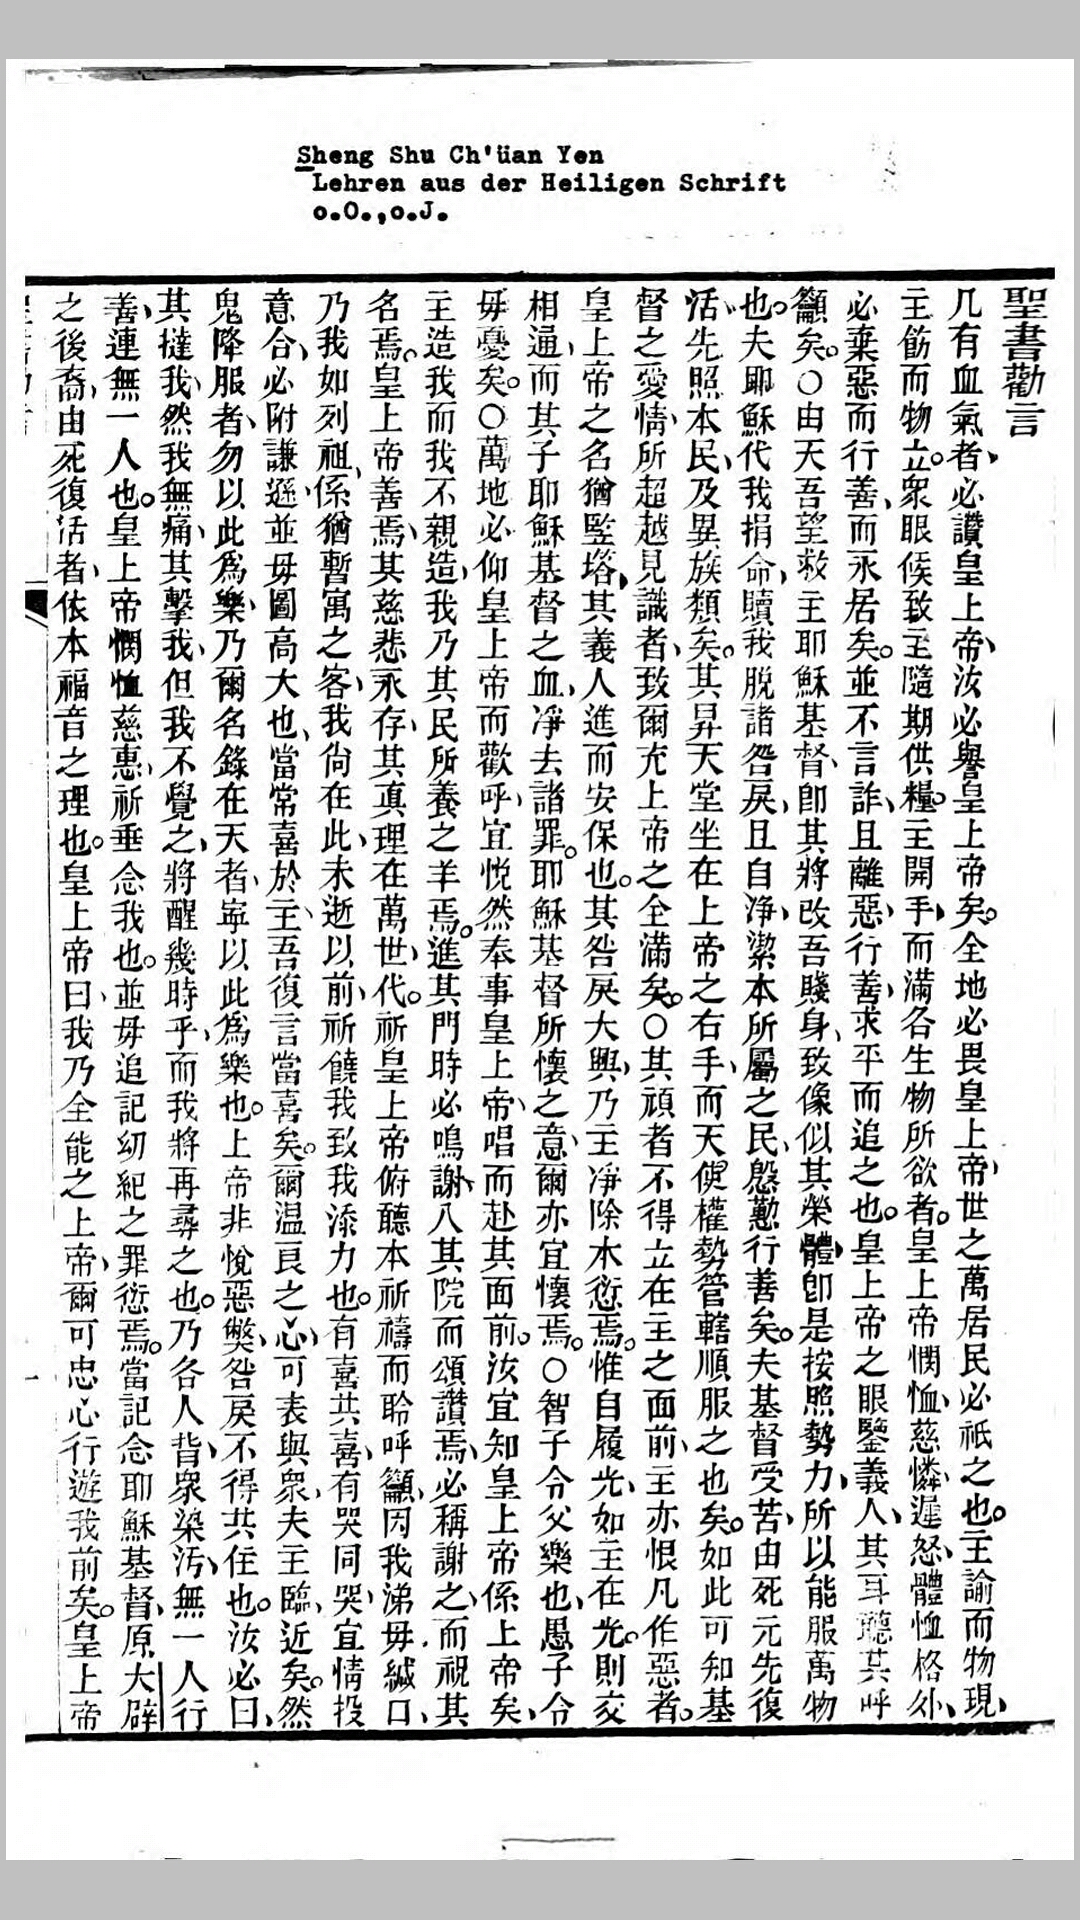 Sheng Shu Ch'üan Yen
Lehren aus der Heiligen Schrift
o.O.,o.J.
聖書勸言
凡有血氣者、必讚皇上帝、汝必譽皇上帝矣。全地必畏皇上帝、世之萬居民必祇之也。主諭而物現、
主飭而物立。衆眼候致主隨期供糧。主開手、而滿各生物所欲者。皇上帝憫恤、慈憐、遲怒、體恤格外、
必棄惡而行善、而永居矣。並不言詐、且離惡、行善、求平而追之也。皇上帝之眼鑒義人、其耳聽其呼
籲矣。○由天吾望救主耶穌基督、卽其將改吾賤身、致像似其榮體、卽是按照勢力、所以能服萬物
也。夫耶穌代我捐命、贖我脫諸咎戾、且自淨潔本所屬之民、慇懃行善矣。夫基督受苦、由死元先復
活、先照本民、及異族類矣。其昇天堂坐在上帝之右手、而天使權勢管轄順服之也矣。如此可知基
督之愛情、所超越見識者、致爾充上帝之全滿矣。○其頑者不得立在主之面前、主亦恨凡作惡者。
皇上帝之名猶堅塔、其義人進而安保也。其咎戾大興、乃主淨除木愆焉。惟自履光、如主在光。則交
相通、而其子耶穌基督之血、淨去諸罪。耶穌基督所懷之意、爾亦宜懷焉。○智子令父樂也、愚子令
母憂矣。○萬地必仰皇上帝而歡呼、宜悅然奉事皇上帝、唱而赴其面前。汝宜知皇上帝係上帝矣、
主造我而我不親造、我乃其民所養之羊焉。進其門時必鳴謝、入其院而頌讚焉、必稱謝之、而祝其
名焉。皇上帝善焉、其慈悲永存、其眞理在萬世代。祈皇上帝俯聽本祈禱而聆呼籲、因我涕毋緘口、
乃我如列祖、係猶暫寓之客、我尙在此、未逝以前、祈饒我致我添力也。有喜共喜、有哭同哭、宜情投
意合、必附謙遜並毋圖高大也、當常喜於主、吾復言當喜矣。爾温良之心、可表與衆、夫主臨近矣。然
鬼降服者、勿以此爲樂、乃爾名錄在天者、寧以此爲樂也。上帝非悅惡獘、咎戾不得共住也。汝必曰、
其撻我、然我無痛、其擊我、但我不覺之、將醒幾時乎、而我將再尋之也。乃各人背、衆染汚、無一人行
善、連無一人也。皇上帝憫恤慈惠、祈垂念我也。並毋追記幼紀之罪愆焉。當記念耶穌基督、原大辟
之後裔、由死復活者、依本福音之理也。皇上帝曰、我乃全能之上帝、爾可忠心行遊我前矣。皇上帝